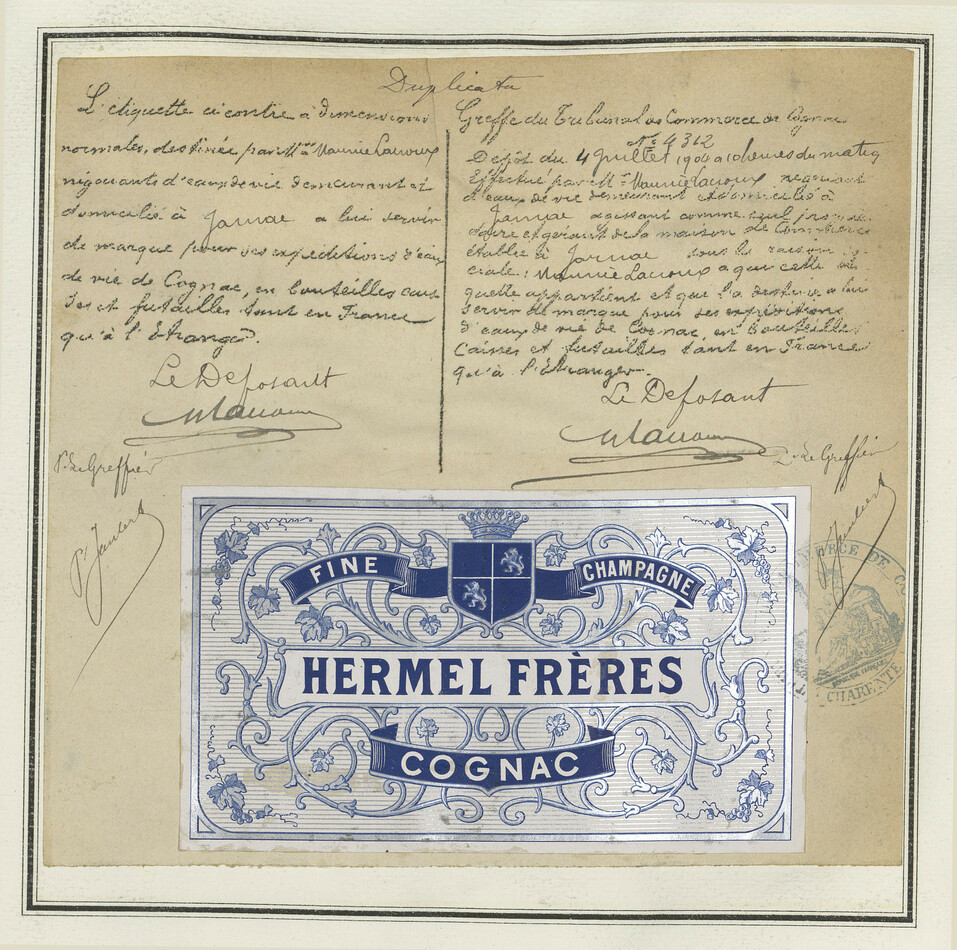 Duplicata
L'étiquette ci contre à dimensions
normales, destinée par Mr Maurice Lacroux
négociants d'eaux de vie demeurant et
domicilié à Jarnac a lui servir
de marque pour ses expeditions d'eau
de vie de Cognac, en bouteilles cais
ses et futailles tant en France
qu'à l'Etranger.
Le Deposant
P. Le Greffier
Greffe du Tribunal de Commerce de Cognac
No 4312
Dépôt du 4 Juillet 1904 a 10 heures du matin
Effectué par Mr Maurice Lacroux négociant
d'eaux de vie demeurant et domicilié à
Jarnac agissant comme seul proprié
taire et gérant de la maison de Commerce
établie à Jarnac sous la raison so
ciale: Maurice Lacroux a qui cette éti
quette appartient et qui l'a destinée a lui
servir de marque pour ses expéditions
d'eaux de vie de Cognac en bouteilles
Caisses et futailles tant en France
qu'à l'Etranger.
Le Deposant
P. Le Greffier
FINE CHAMPAGNE
HERMEL FRÈRES
COGNAC
CHARENTE